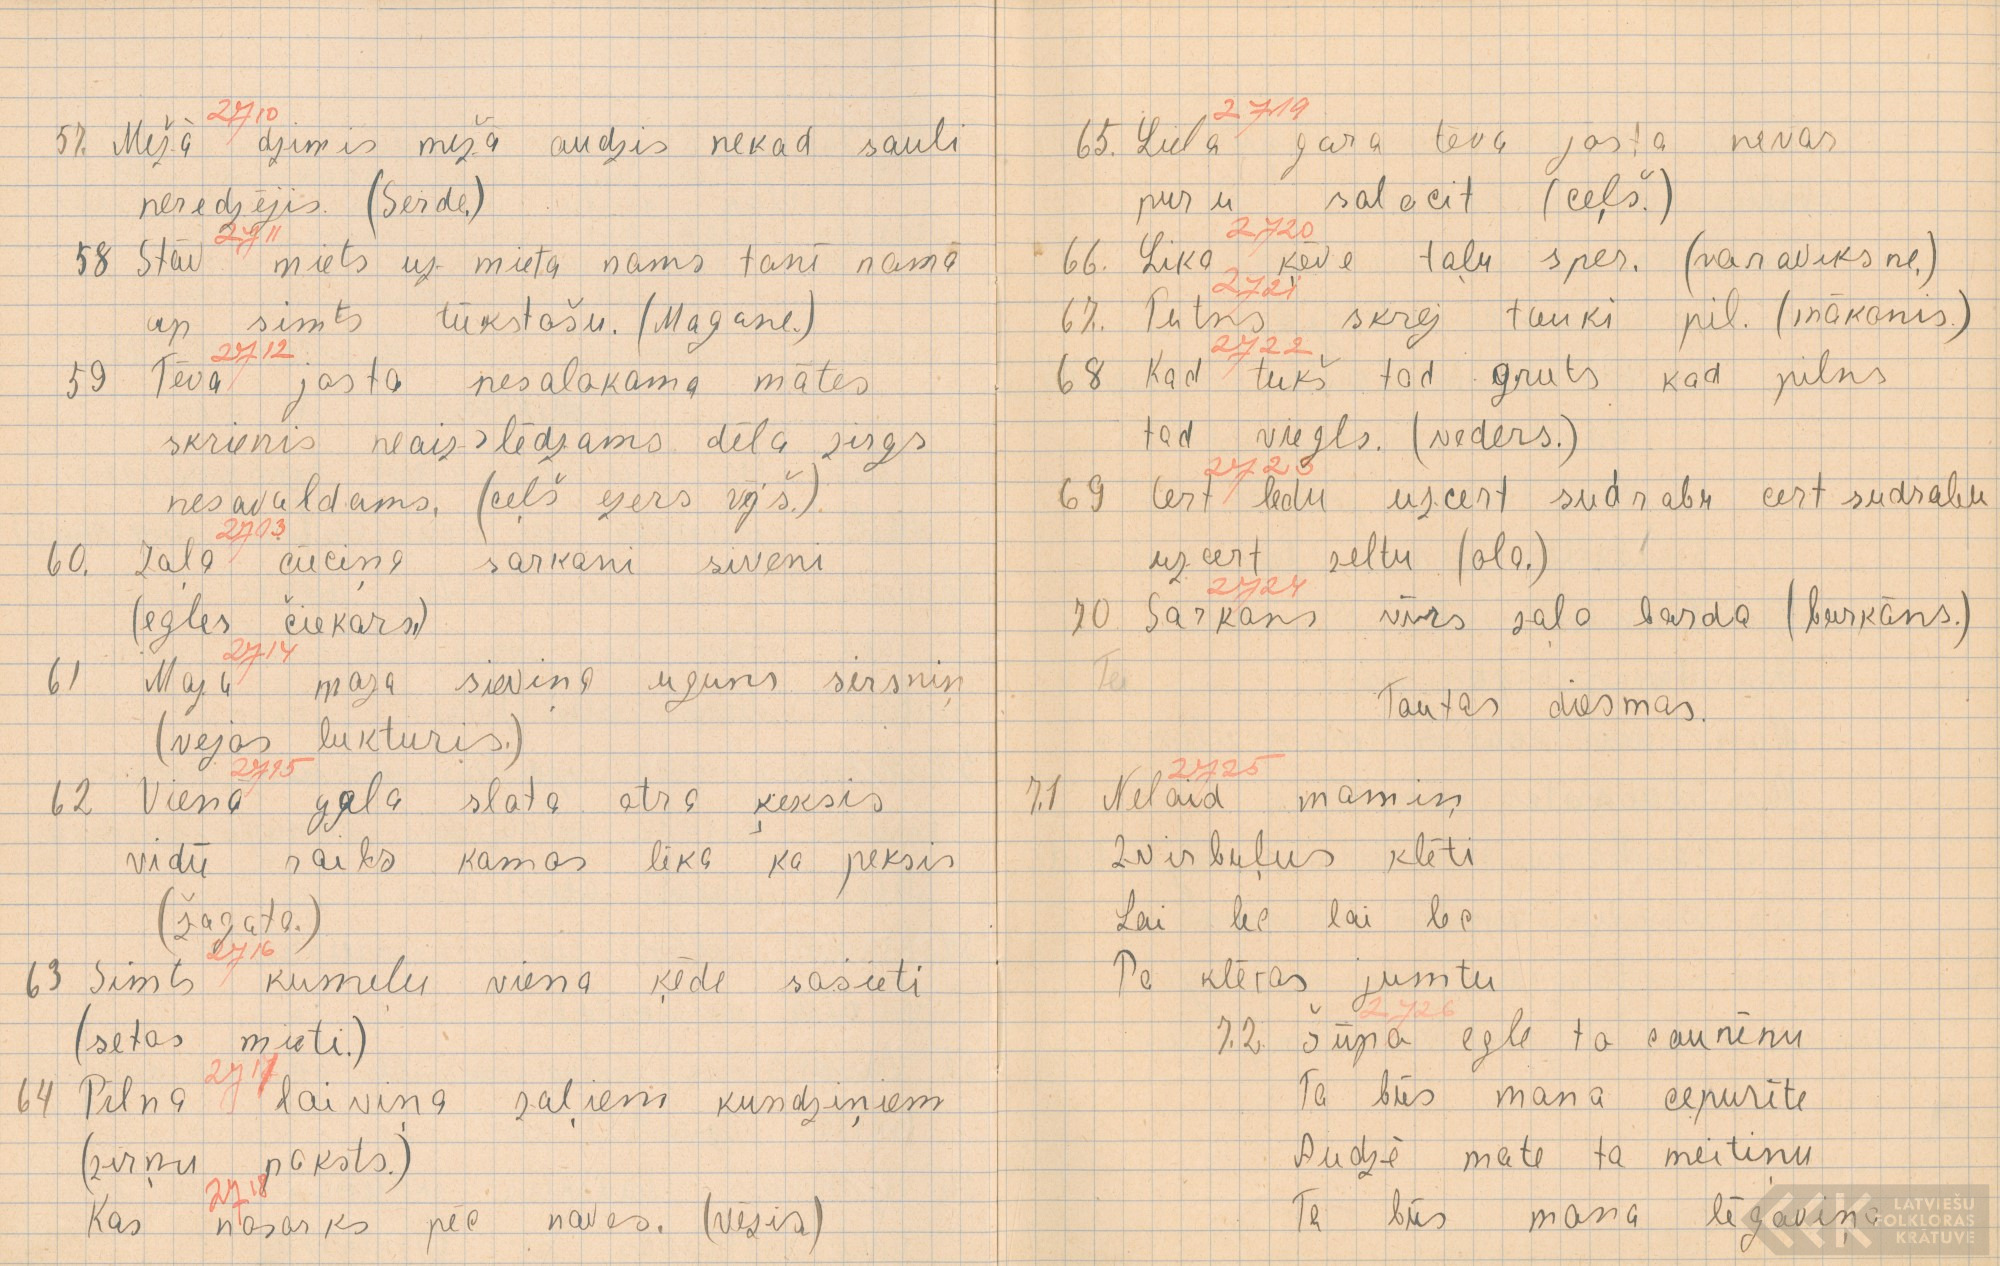 2710
57. Mežā dzimis mežā audzis nekad sauli
neredzējis. (Serde.)
2711
58 Stāv miets uz mieta nams tanī namā
ap simts tūkstošu. (Magane.)
2712
59 Tēva josta nesalokama mātes
skrienis neaizslēdzams dēla zirgs
nesavaldams. (ceļš ezers vējš.)
2713
60. Zaļa cūciņa sarkani sivēni
(egles čiekars.)
2714
61 Maza maza sieviņa uguns sirsniņ
(vejas lukturis.)
2715
62 Vienā gala slota otra ķeksis
vidū raibs kamos lēka ka peksis
(žagata.)
2716
63 Simts kumeļu viena ķēde sasieti
(setas mieti.)
2717
64 Pilna laiviņa zaļiem kundziņiem
(zirņu paksts.)
2718
Kas nosarks pēc naves. (vēzis)
2719
65. Liela gara tēva josta nevar
puru salocit (ceļš.)
2720
66. Lika ķēve taļu sper. (varaviksne.)
2721
67. Putns skrej tauki pil. (mākonis.)
2722
68 Kad tukš tad gruts kad pilns
tad viegls. (veders.)
2723
69 Cert ledu uzcert sudrabu cert sudrabu
uzcert zeltu (ola.)
2724
70 Sarkans vīrs zaļa barda (burkāns.)
Te
Tautas diesmas.
2725
71 Nelaid mamiņ
Zvirbuļus klēti
Lai lec lai lec
Pa klētas jumtu
2726
72. Šūpa egle to caunēnu
Ta būs mana cepurīte
Audzē mate ta meitiņu
Ta būs mana lēgaviņa
LATVIEŠU
FOLKLORAS
KRĀTUVE